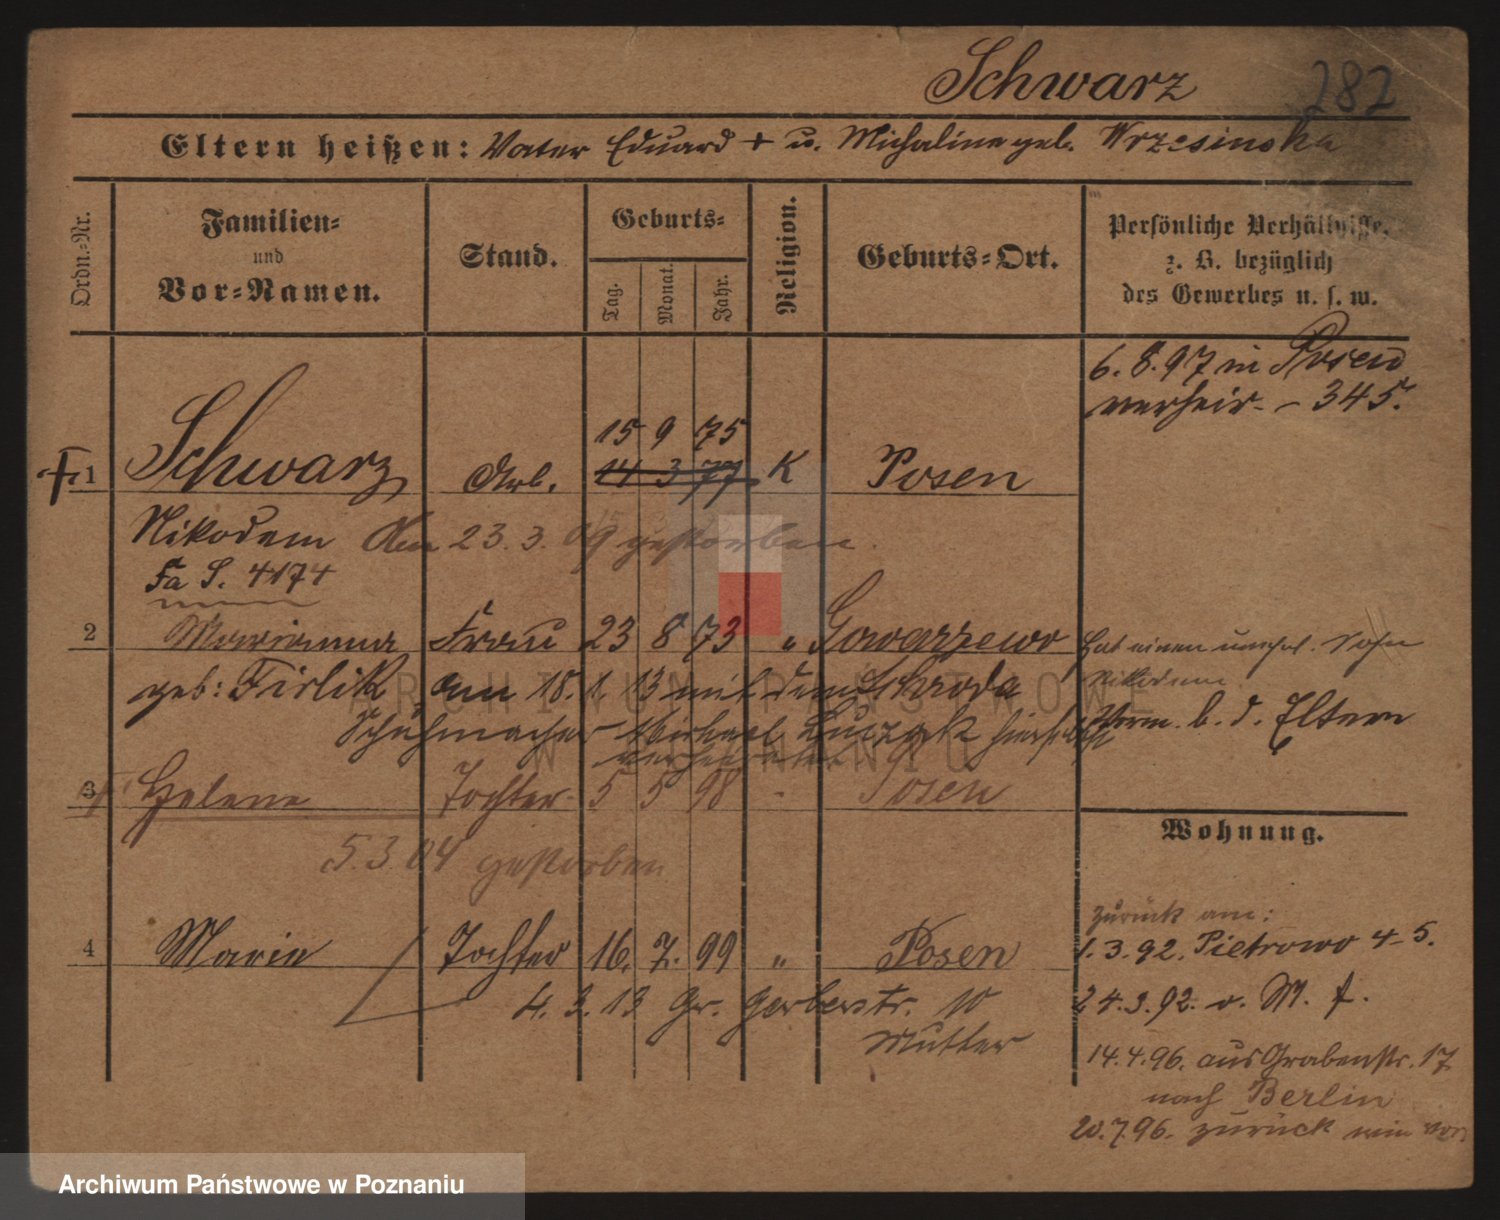 Schwarz 282
Eltern heißen: Vater Eduard + u. Michaline geb. Wrzesinska
Ordn.-Nr.
Familien-
und
Vor-Namen.
Stand.
Geburts-
Tag.
Monat.
Jahr.
Religion.
Geburts-Ort.
Persönliche Verhältnisse.
z. B. bezüglich
des Gewerbes u. s. w.
6.8.97 in Posen
verheir. – 345.
15 9 75
+ 1 Schwarz, Arb. 14 3 77 K Posen
Nikodem Am 23.3.09 gestorben.
Fa S. 4174
2 Marianna Frau 23 8 73 " Gowarzewo Hat einen unehel. Sohn
Nikodem
geb: Firlik, am 18.1.13 mit dem Schroda
Schuhmacher Michael hierselbst
verheiratet
Verm. b. d. Eltern
3 Helene Tochter 5 5 98 - Posen
5.3.04 gestorben
Wohnung.
4 Marie Tochter 16. 7. 99 " Posen
4.3.13 Gr. Gerberstr. 10
Mutter
Zurück am:
1.3.92. Pietrowo 4-5.
24.3.92. v. M. f.
14.4.96. aus Grabenstr. 17
nach Berlin
20.7.96. zurück wie vor
ARCHIWUM PAŃSTWOWE
W POZNANIU
Archiwum Państwowe w Poznaniu